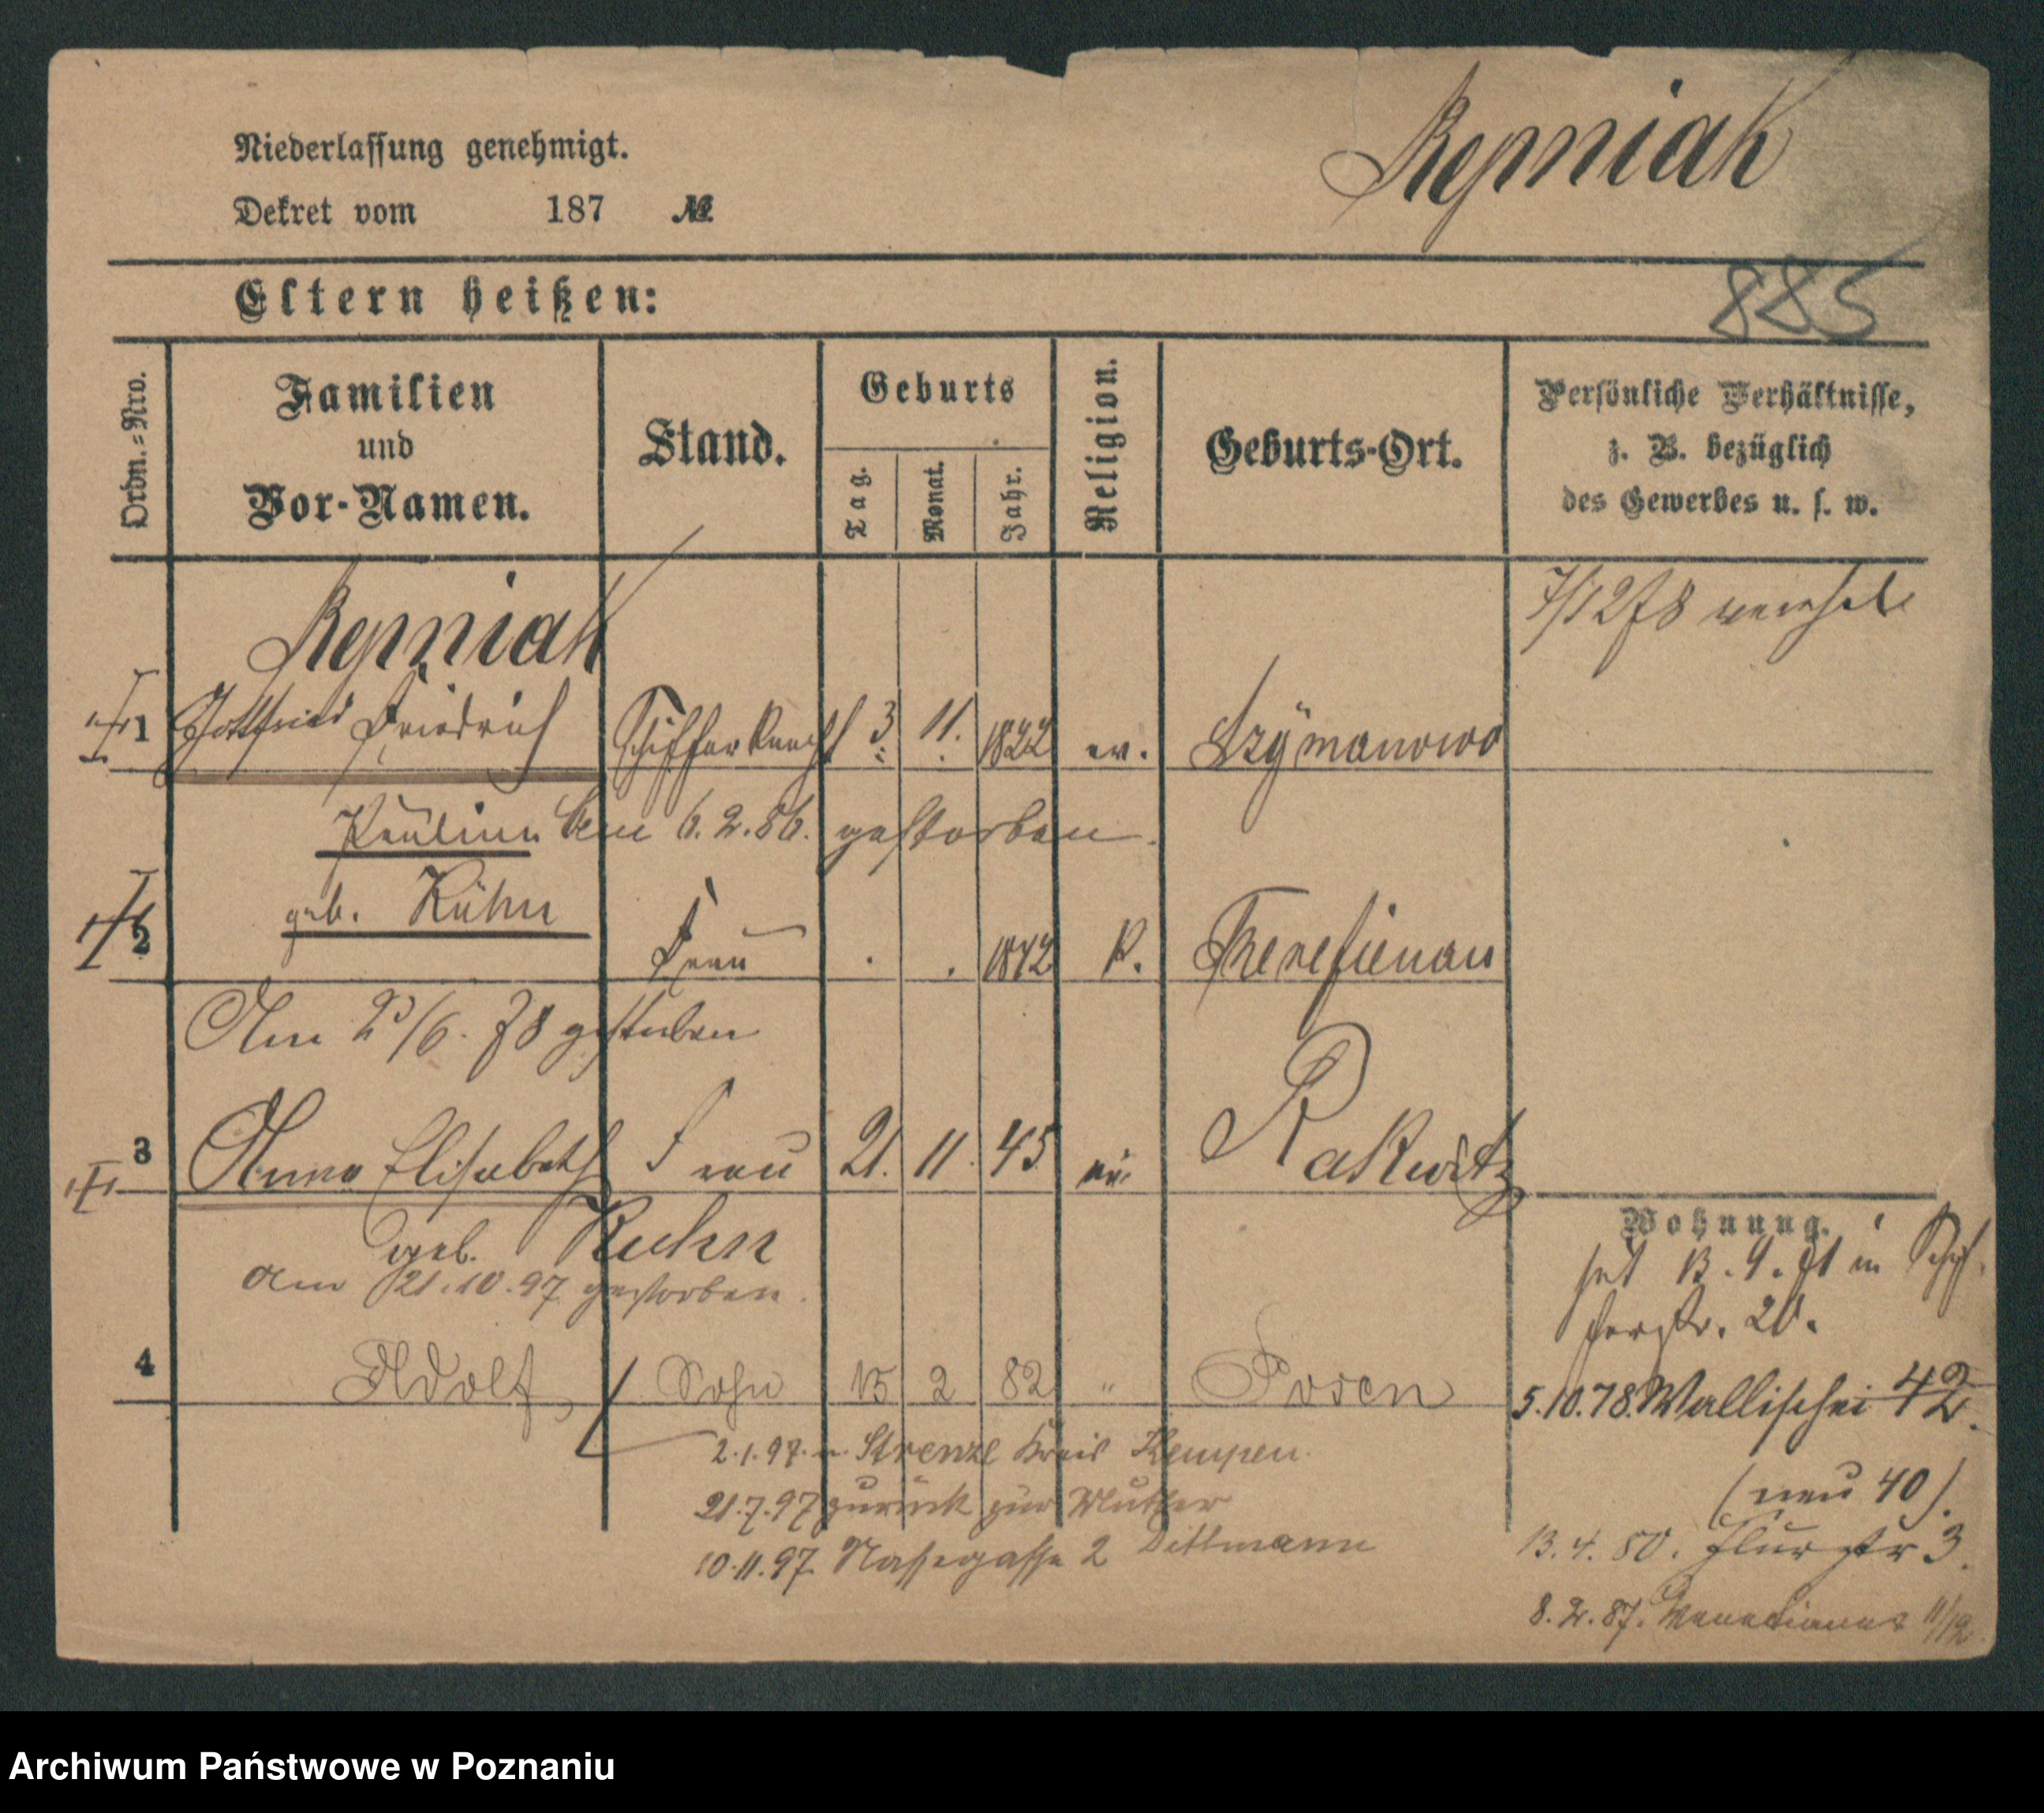 Niederlassung genehmigt.
Repniak
Dekret vom 187 №
Eltern heißen:
885
Ordn.-Nro.
Familien
und
Vor-Namen.
Stand.
Geburts
Tag.
Monat.
Jahr.
Religion.
Geburts-Ort.
Persönliche Verhältnisse,
z. B. bezüglich
des Gewerbes u. s. w.
Repniak
1 Gottfried Friedrich Schifferknecht 3. 11. 1822 ev. Szymanowo
Pauline Am 6.2.86. gestorben.
geb. Kühn
2 Frau . . 1842 K. Theresienau
Am 25/6. 78 gestorben
3 Anna Elisabeth Frau 21. 11. 45 ev. Rakwitz
geb. Kuhn
am 21.10.97 gestorben.
4 Adolf, Sohn 15 2 82 " Posen
2.1.97. n. Strenze Kreis Kempen.
21.7.97 zurück zur Mutter
10.11.97. Nassegasse 2 Dittmann
Wohnung.
in Schif-
ferstr. 20.
5.10.78. Wallischei 42.
(neu 40).
13.4.80. Flurstr 3.
8.2.87. Venetianer 11/12.
Archiwum Państwowe w Poznaniu